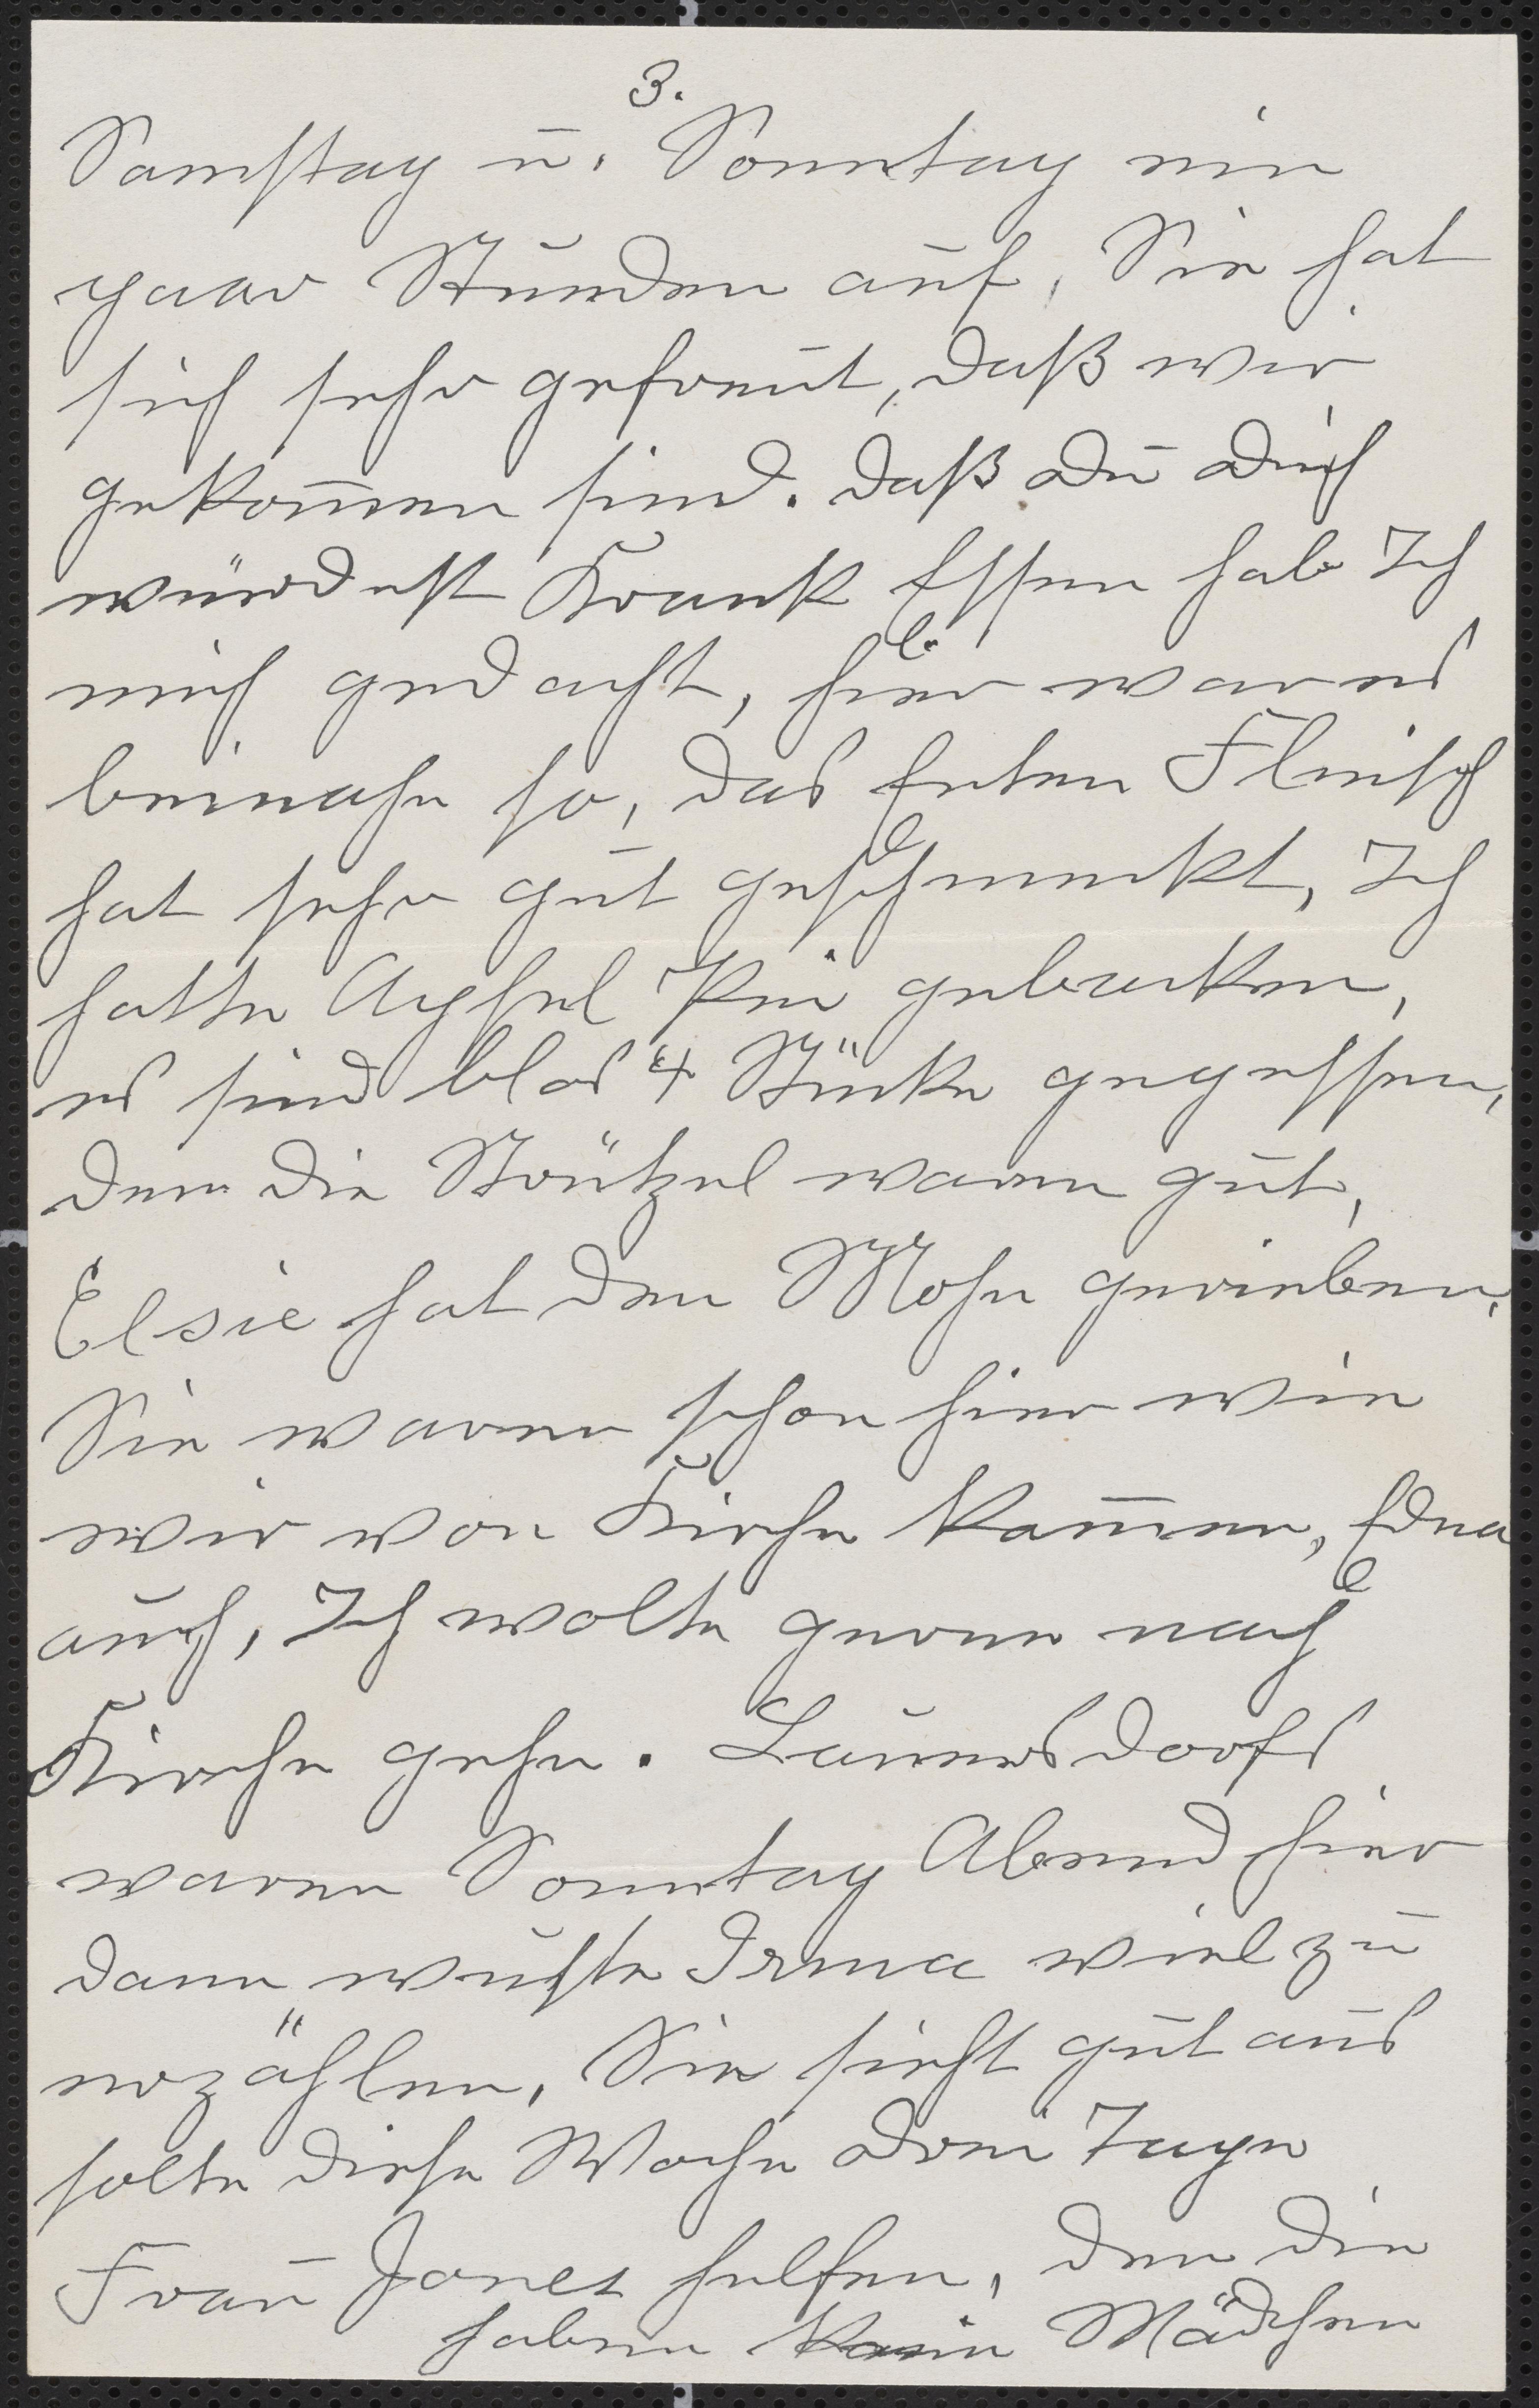 3.
Samstag u. Sonntag ein
paar Stunden auf, Sie hat
sich sehr gefreut, daß wir
gekom̄en sind. daß du dich
würdest Krank Essen hab Ich
mich gedacht, hier war es
beinahe so, das Enten Fleisch
hat sehr gut geschmeckt, Ich
hatte Apfel Pei gebacken,
es sind blos 4 Stücke gegessen,
den die Strützel waren gut,
Elsie hat den Mohn gerieben,
Sie waren schon hier wie
wir von Kirche kam̄en, Edna
auch, Ich wolte gerne nach
Kirche gehn. Lauersdorfs
waren Sonntag Abend hier
dann wuste Irma viel zu
erzählen, Sie sieht gut aus
solte diese Woche drei Tage
Frau Jones helfen, den die
haben kein Mädchen